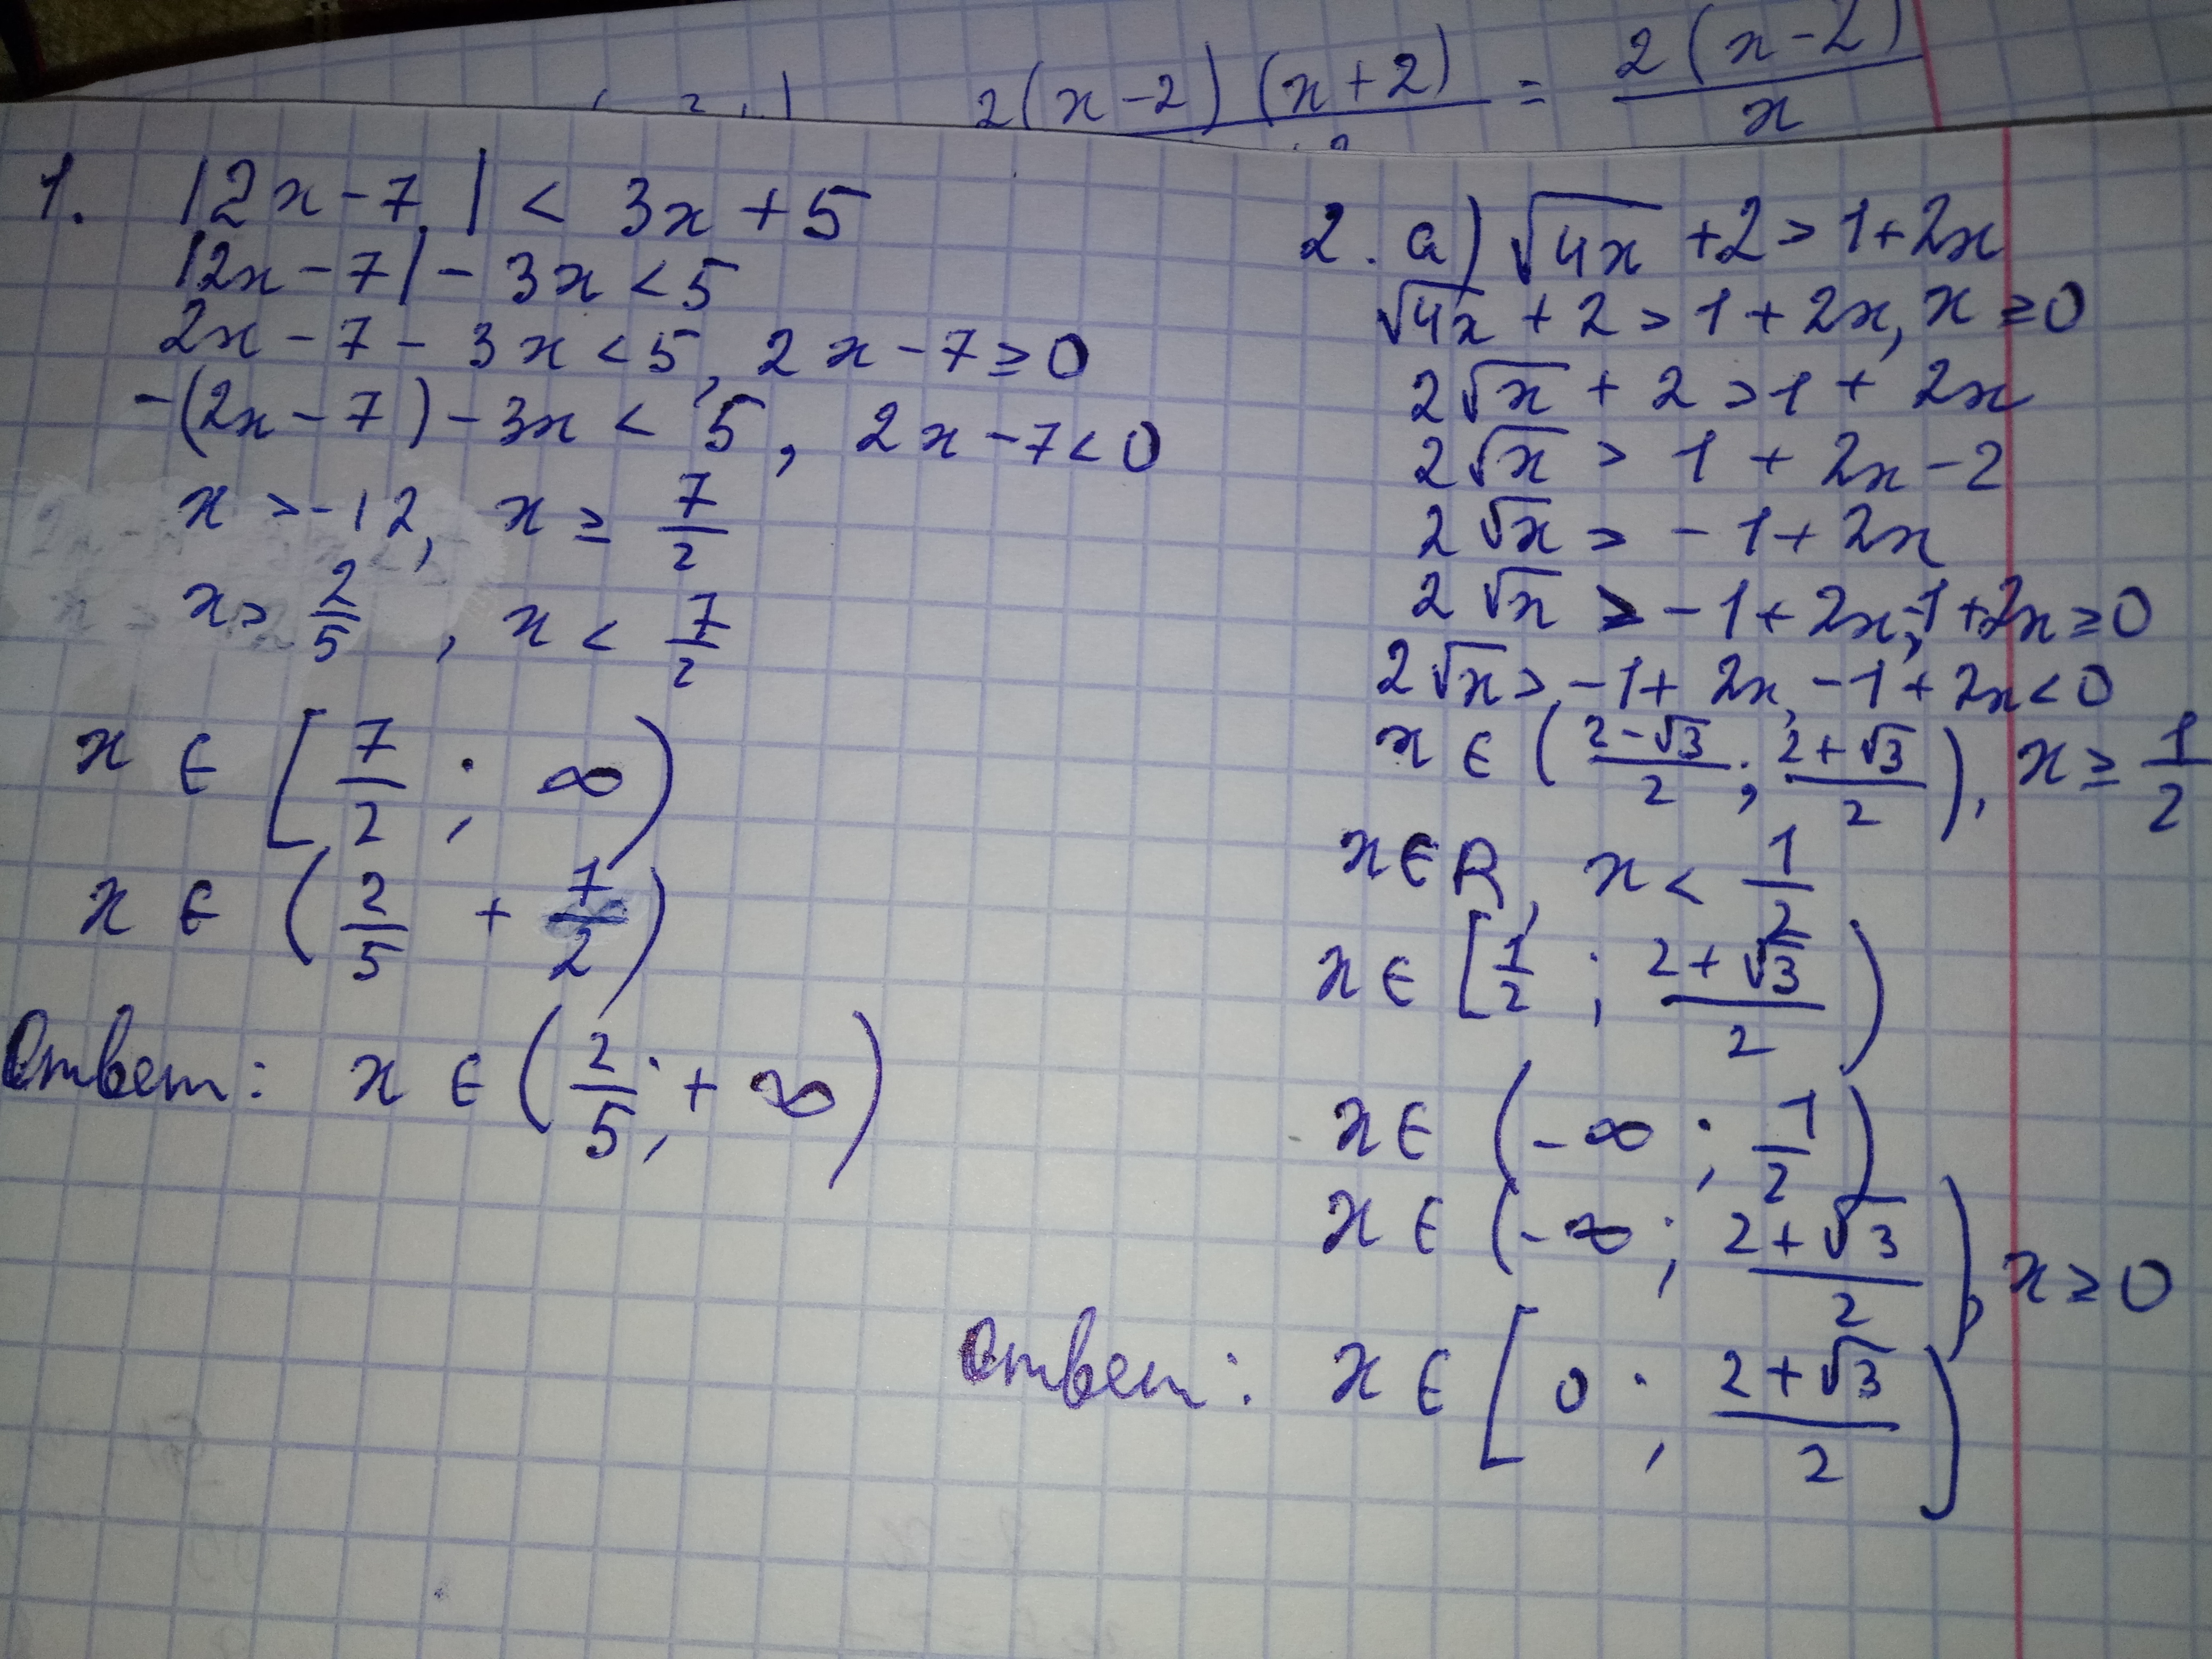 2(x-2)(x+2) = 2(x-2)/x
1. |2x-7| < 3x+5
|2x-7|-3x<5
2x-7-3x<5, 2x-7≥0
-(2x-7)-3x<5, 2x-7<0
x>-12, x≥7/2
x>2/5, x<7/2
x∈[7/2; ∞)
x∈(2/5 + 7/2)
Ответ: x∈(2/5; +∞)
2. а) √4x +2>1+2x
√4x+2>1+2x, x≥0
2√x+2>1+2x
2√x>1+2x-2
2√x>-1+2x
2√x>-1+2x, -1+2x≥0
2√x>-1+2x, -1+2x<0
x∈((2-√3)/2; (2+√3)/2), x≥1/2
x∈R, x<1/2
x∈[1/2; (2+√3)/2)
x∈(-∞; 1/2)
x∈(-∞; (2+√3)/2), x≥0
Ответ: x∈[0; (2+√3)/2)